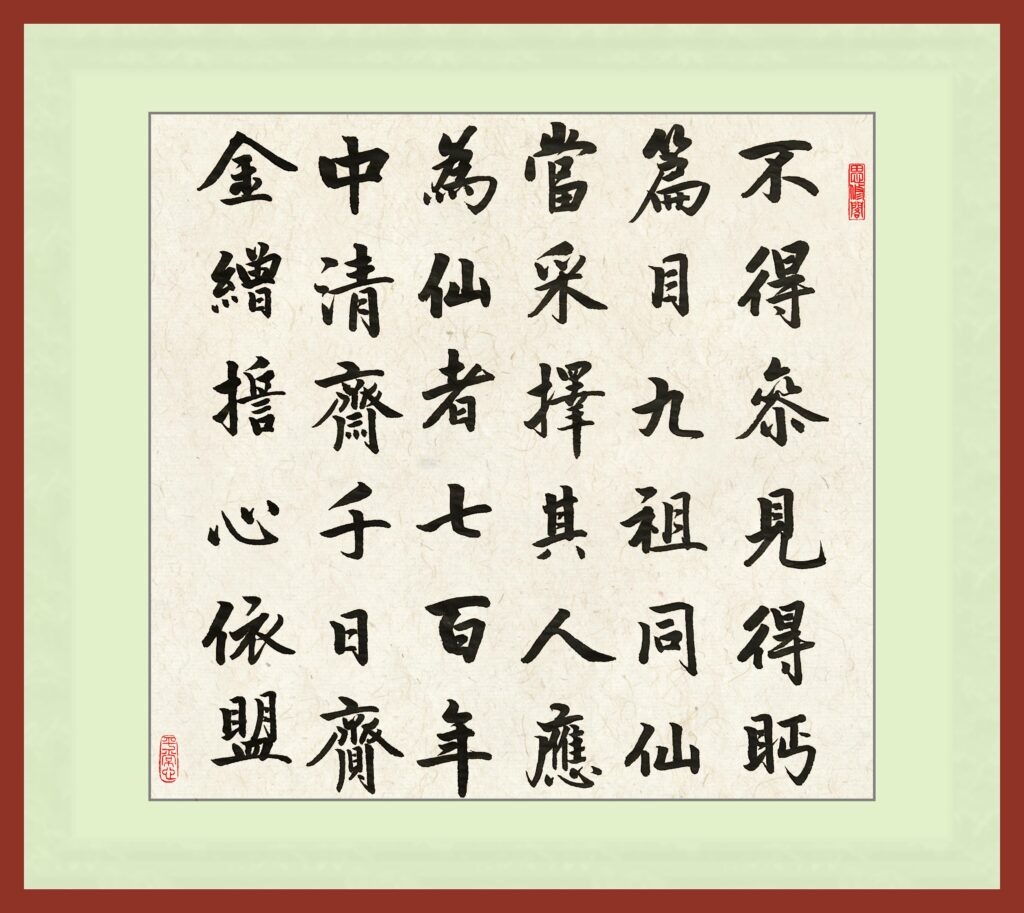 不得叅見得眄
篇目九祖同仙
當采擇其人應
為仙者七百年
中清齋千日齎
金繒擔心依盟
平常心